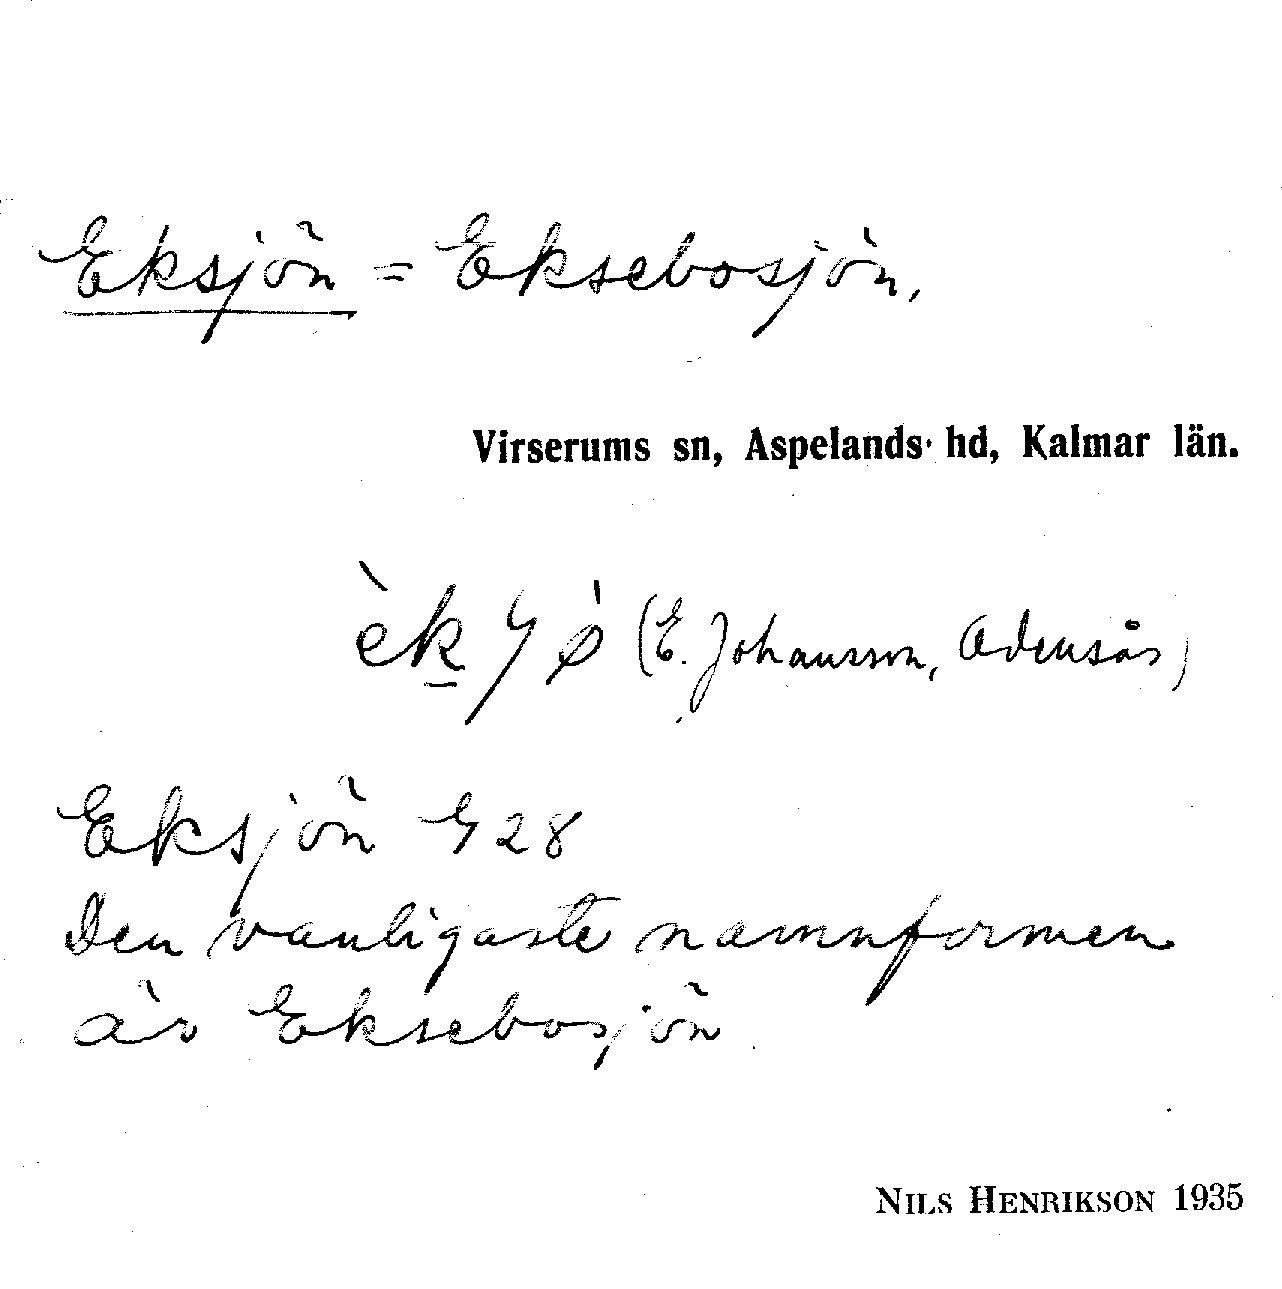 Eksjön = Eksebosjön,
Virserums sn, Aspelands hd, Kalmar län.
(E. Johansson, Adensås)
Eksjön G 28
Den vanligaste namnformen
är Eksebosjön
NILS HENRIKSON 1935